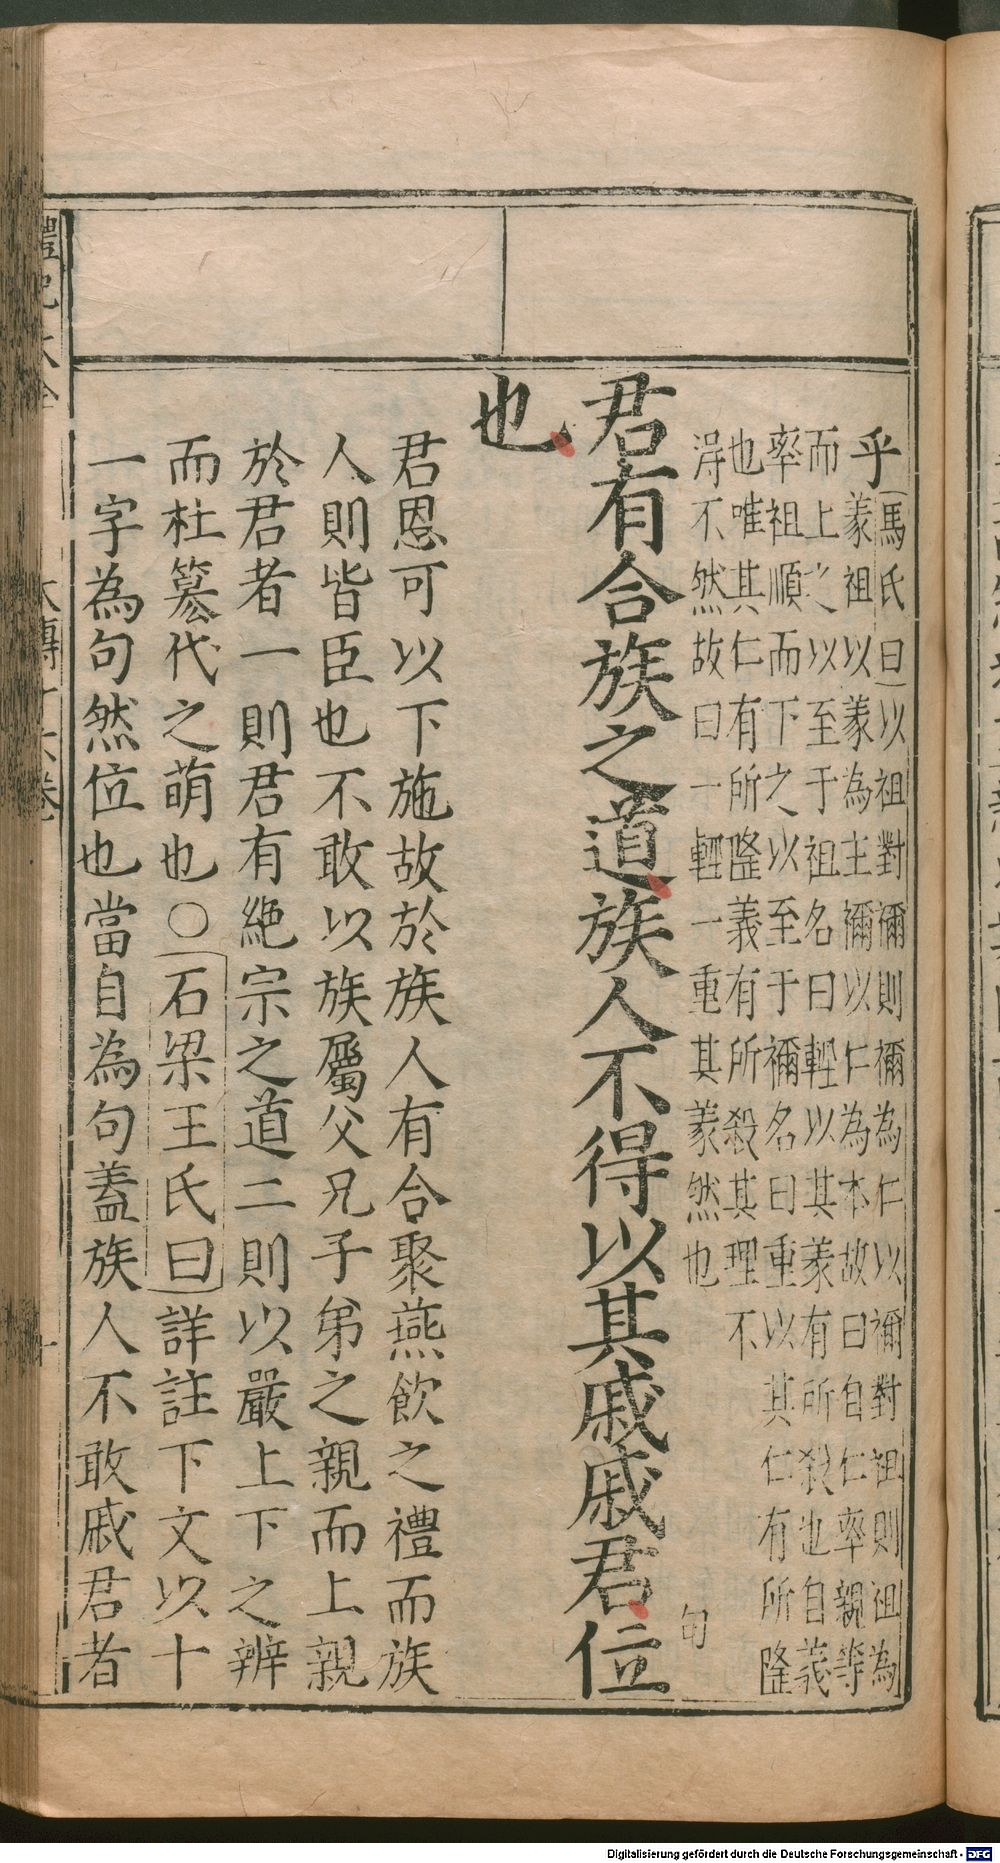 乎馬氏曰以祖對禰則禰為仁以禰對祖則祖為
義祖以義為主禰以仁為本故曰自仁率親等
而上之以至于祖名曰輕以其義有所殺也自義
率祖順而下之以至于禰名曰重以其仁有所隆
也唯其仁有所隆義有所殺其理不
得不然故曰一輕一重其義然也
君有合族之道族人不得以其戚戚君位句
也
君恩可以下施故於族人有合聚燕飲之禮而族
人則皆臣也不敢以族屬父兄子弟之親而上親
於君者一則君有絶宗之道二則以嚴上下之辨
而杜簒代之萌也○石梁王氏曰詳註下文以十
一字為句然位也當自為句蓋族人不敢戚君者
禮記大全 大傳十六卷 十
Digitalisierung gefördert durch die Deutsche Forschungsgemeinschaft - DFG